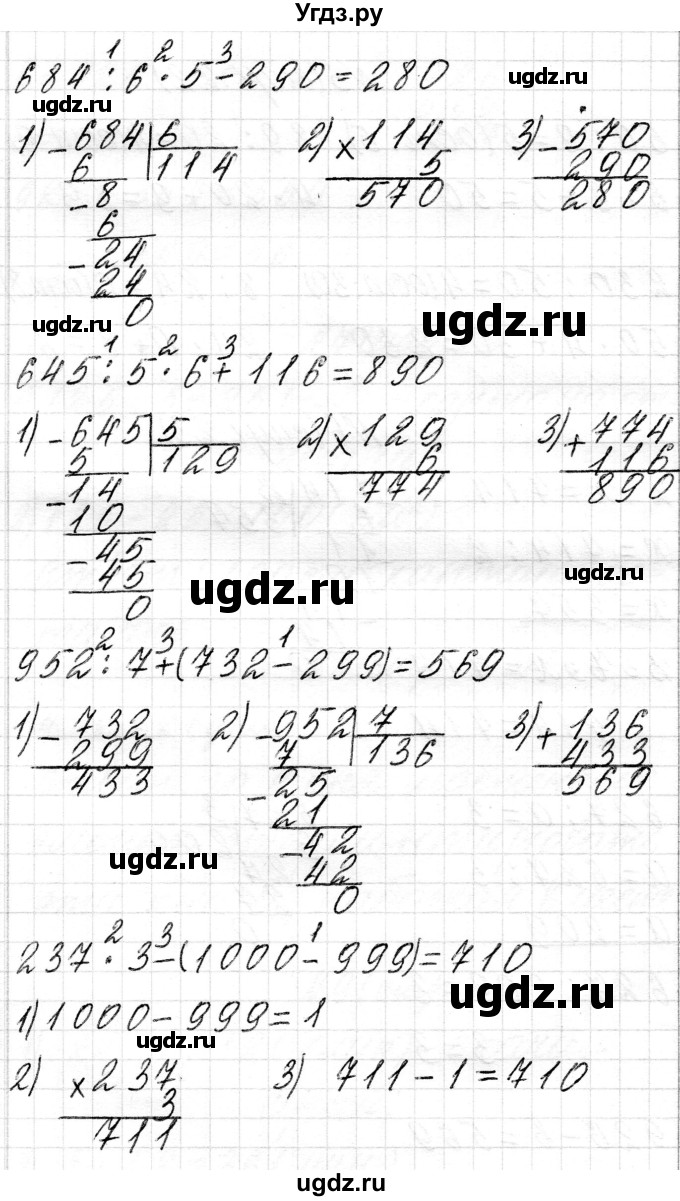 Угдз.ру
684 : 6 · 5 - 290 = 280
1 2 3
ugdz.ru ugdz.ru
1) - 684 | 6 2) × 114 3) - 570
6 114 5 290
- 8 570 280
6
- 24
24
0
ugdz.ru ugdz.ru
645 : 5 · 6 + 116 = 890
1 2 3
1) - 645 | 5 2) × 129 3) + 774
5 129 6 116
- 14 774 890
10
- 45
45
0
ugdz.ru ugdz.ru
952 : 7 + (732 - 299) = 569
2 3 1
1) - 732 2) - 952 | 7 3) + 136
299 7 136 433
433 - 25 569
21
- 42
42
0
ugdz.ru ugdz.ru
237 · 3 - (1000 - 999) = 710
2 3 1
ugdz.ru
1) 1000 - 999 = 1
ugdz.ru
2) × 237 3) 711 - 1 = 710
3
711
ugdz.ru